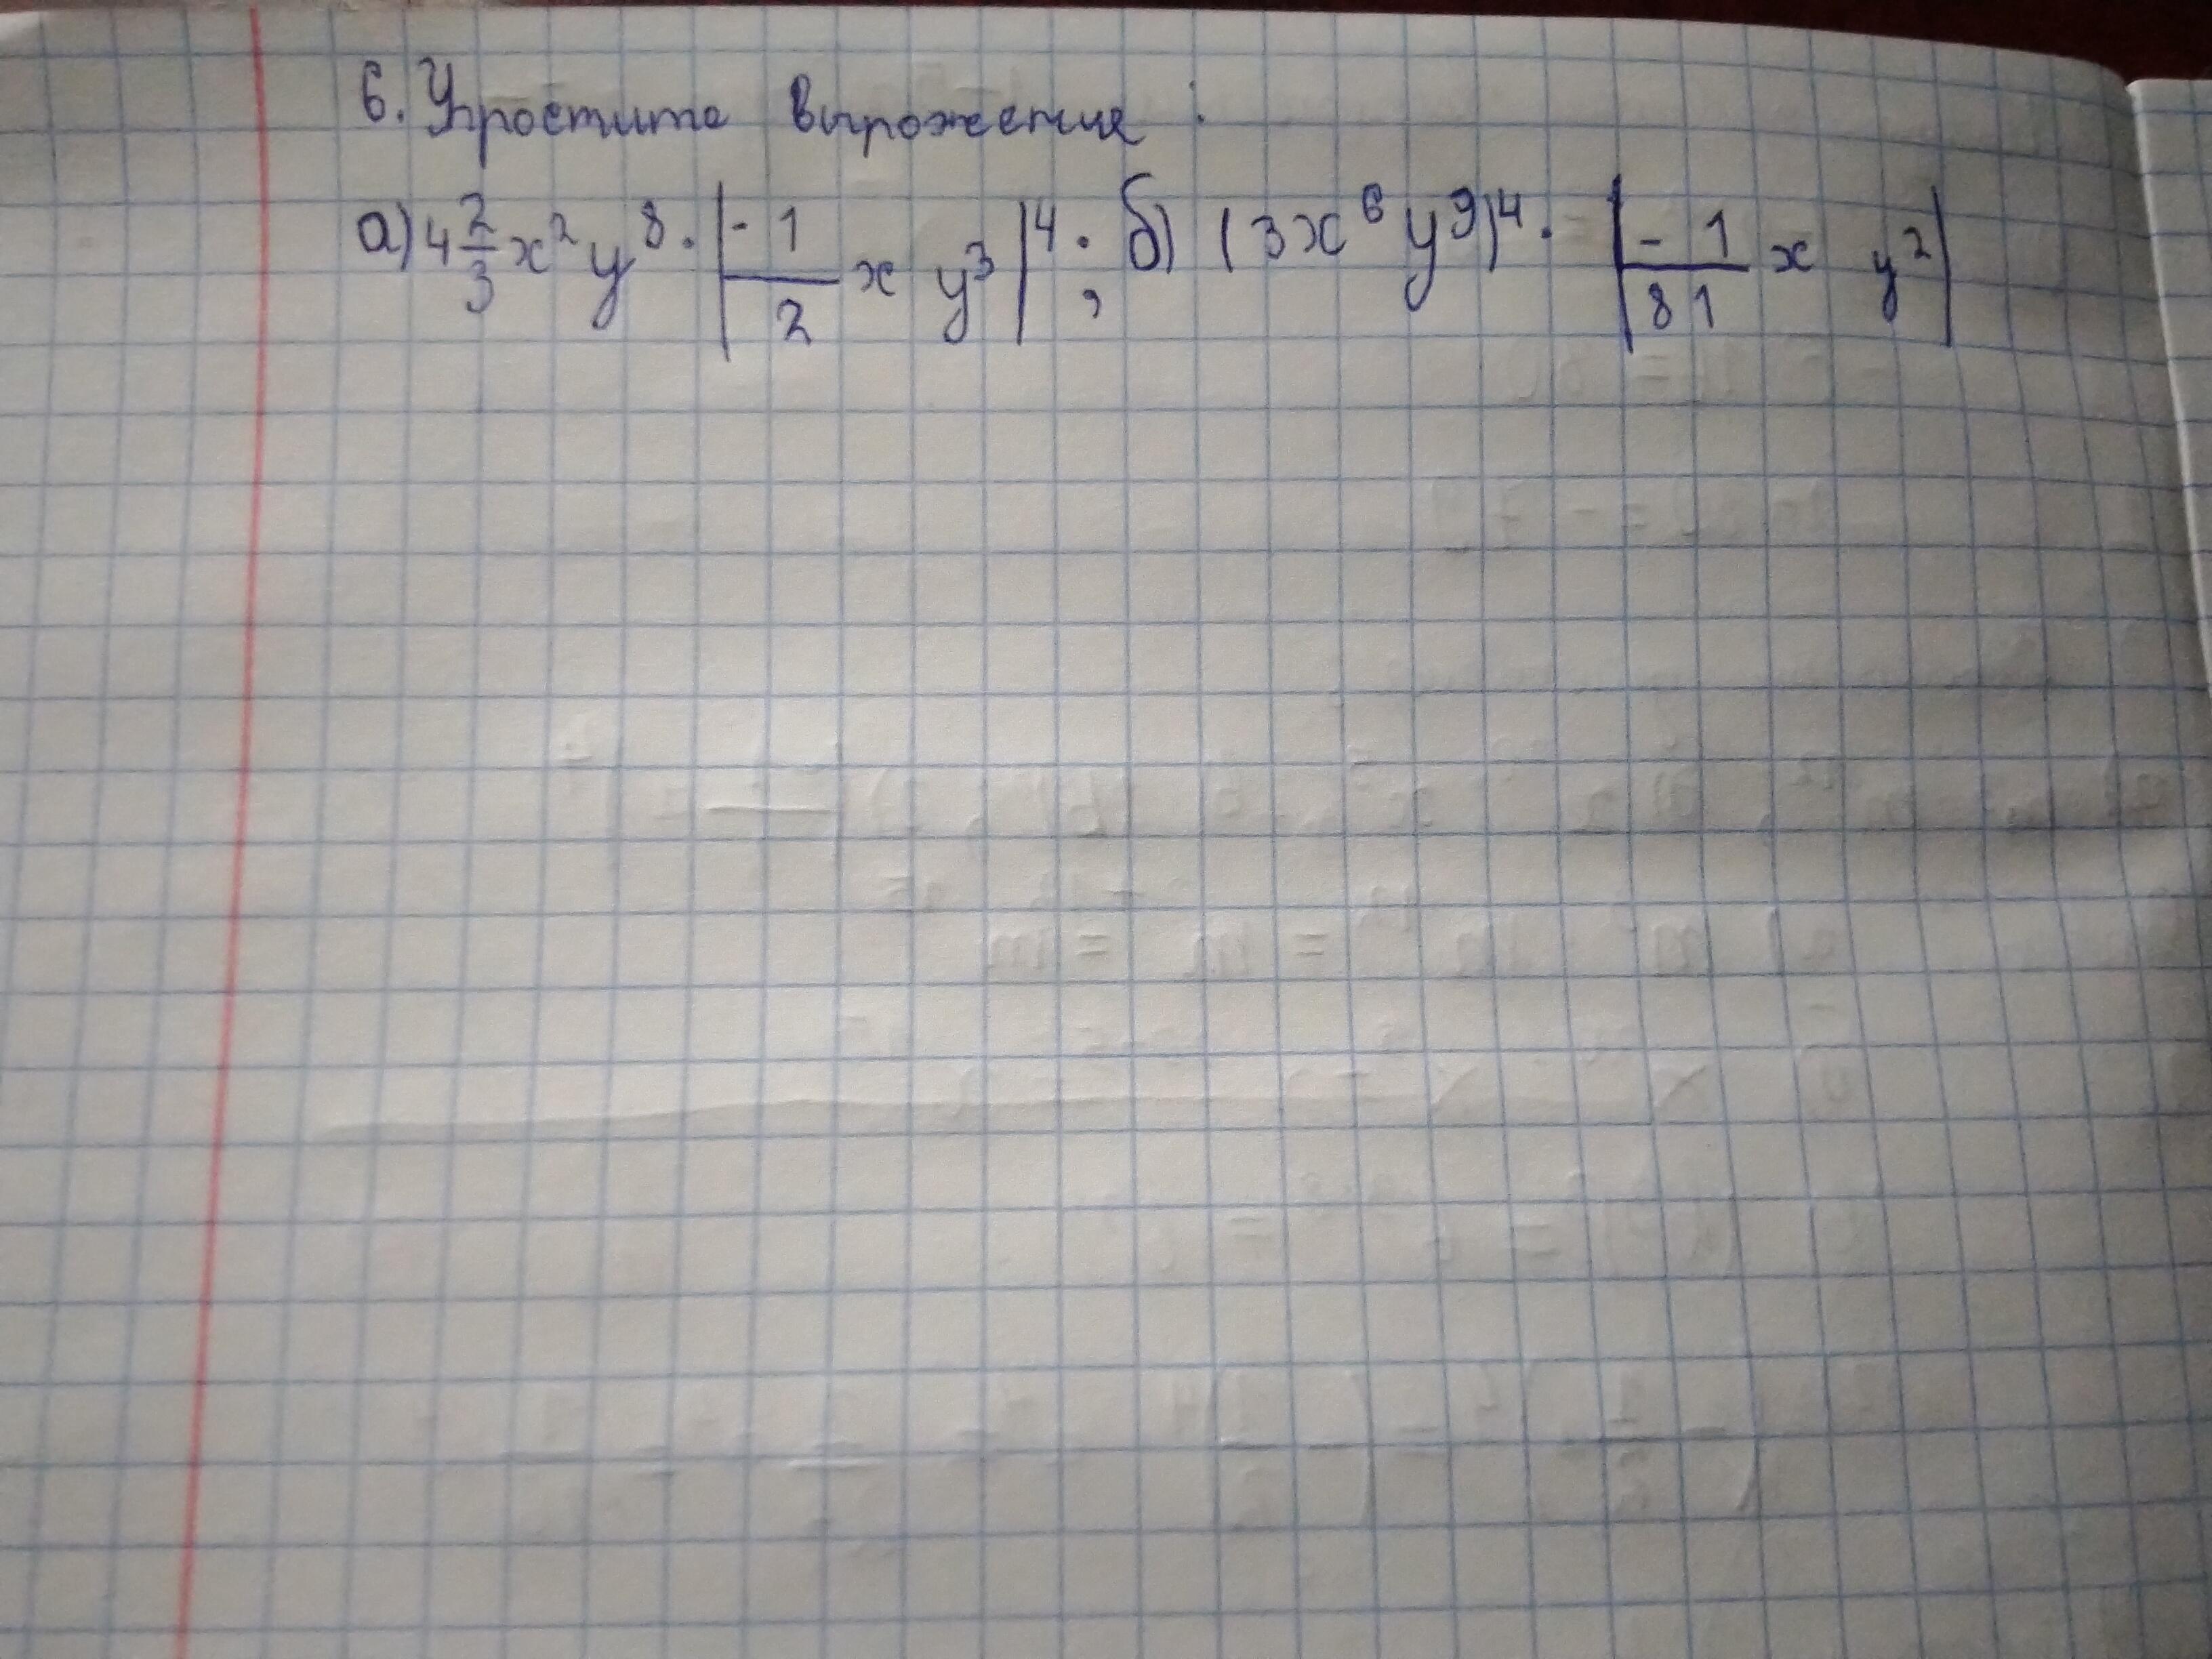 6. Упростите выражения :
а) 4 2/3 x² y⁸ · |-1/2 x y³|⁴ ; б) (3x⁶ y⁹)⁴ · |-1/81 x y²|